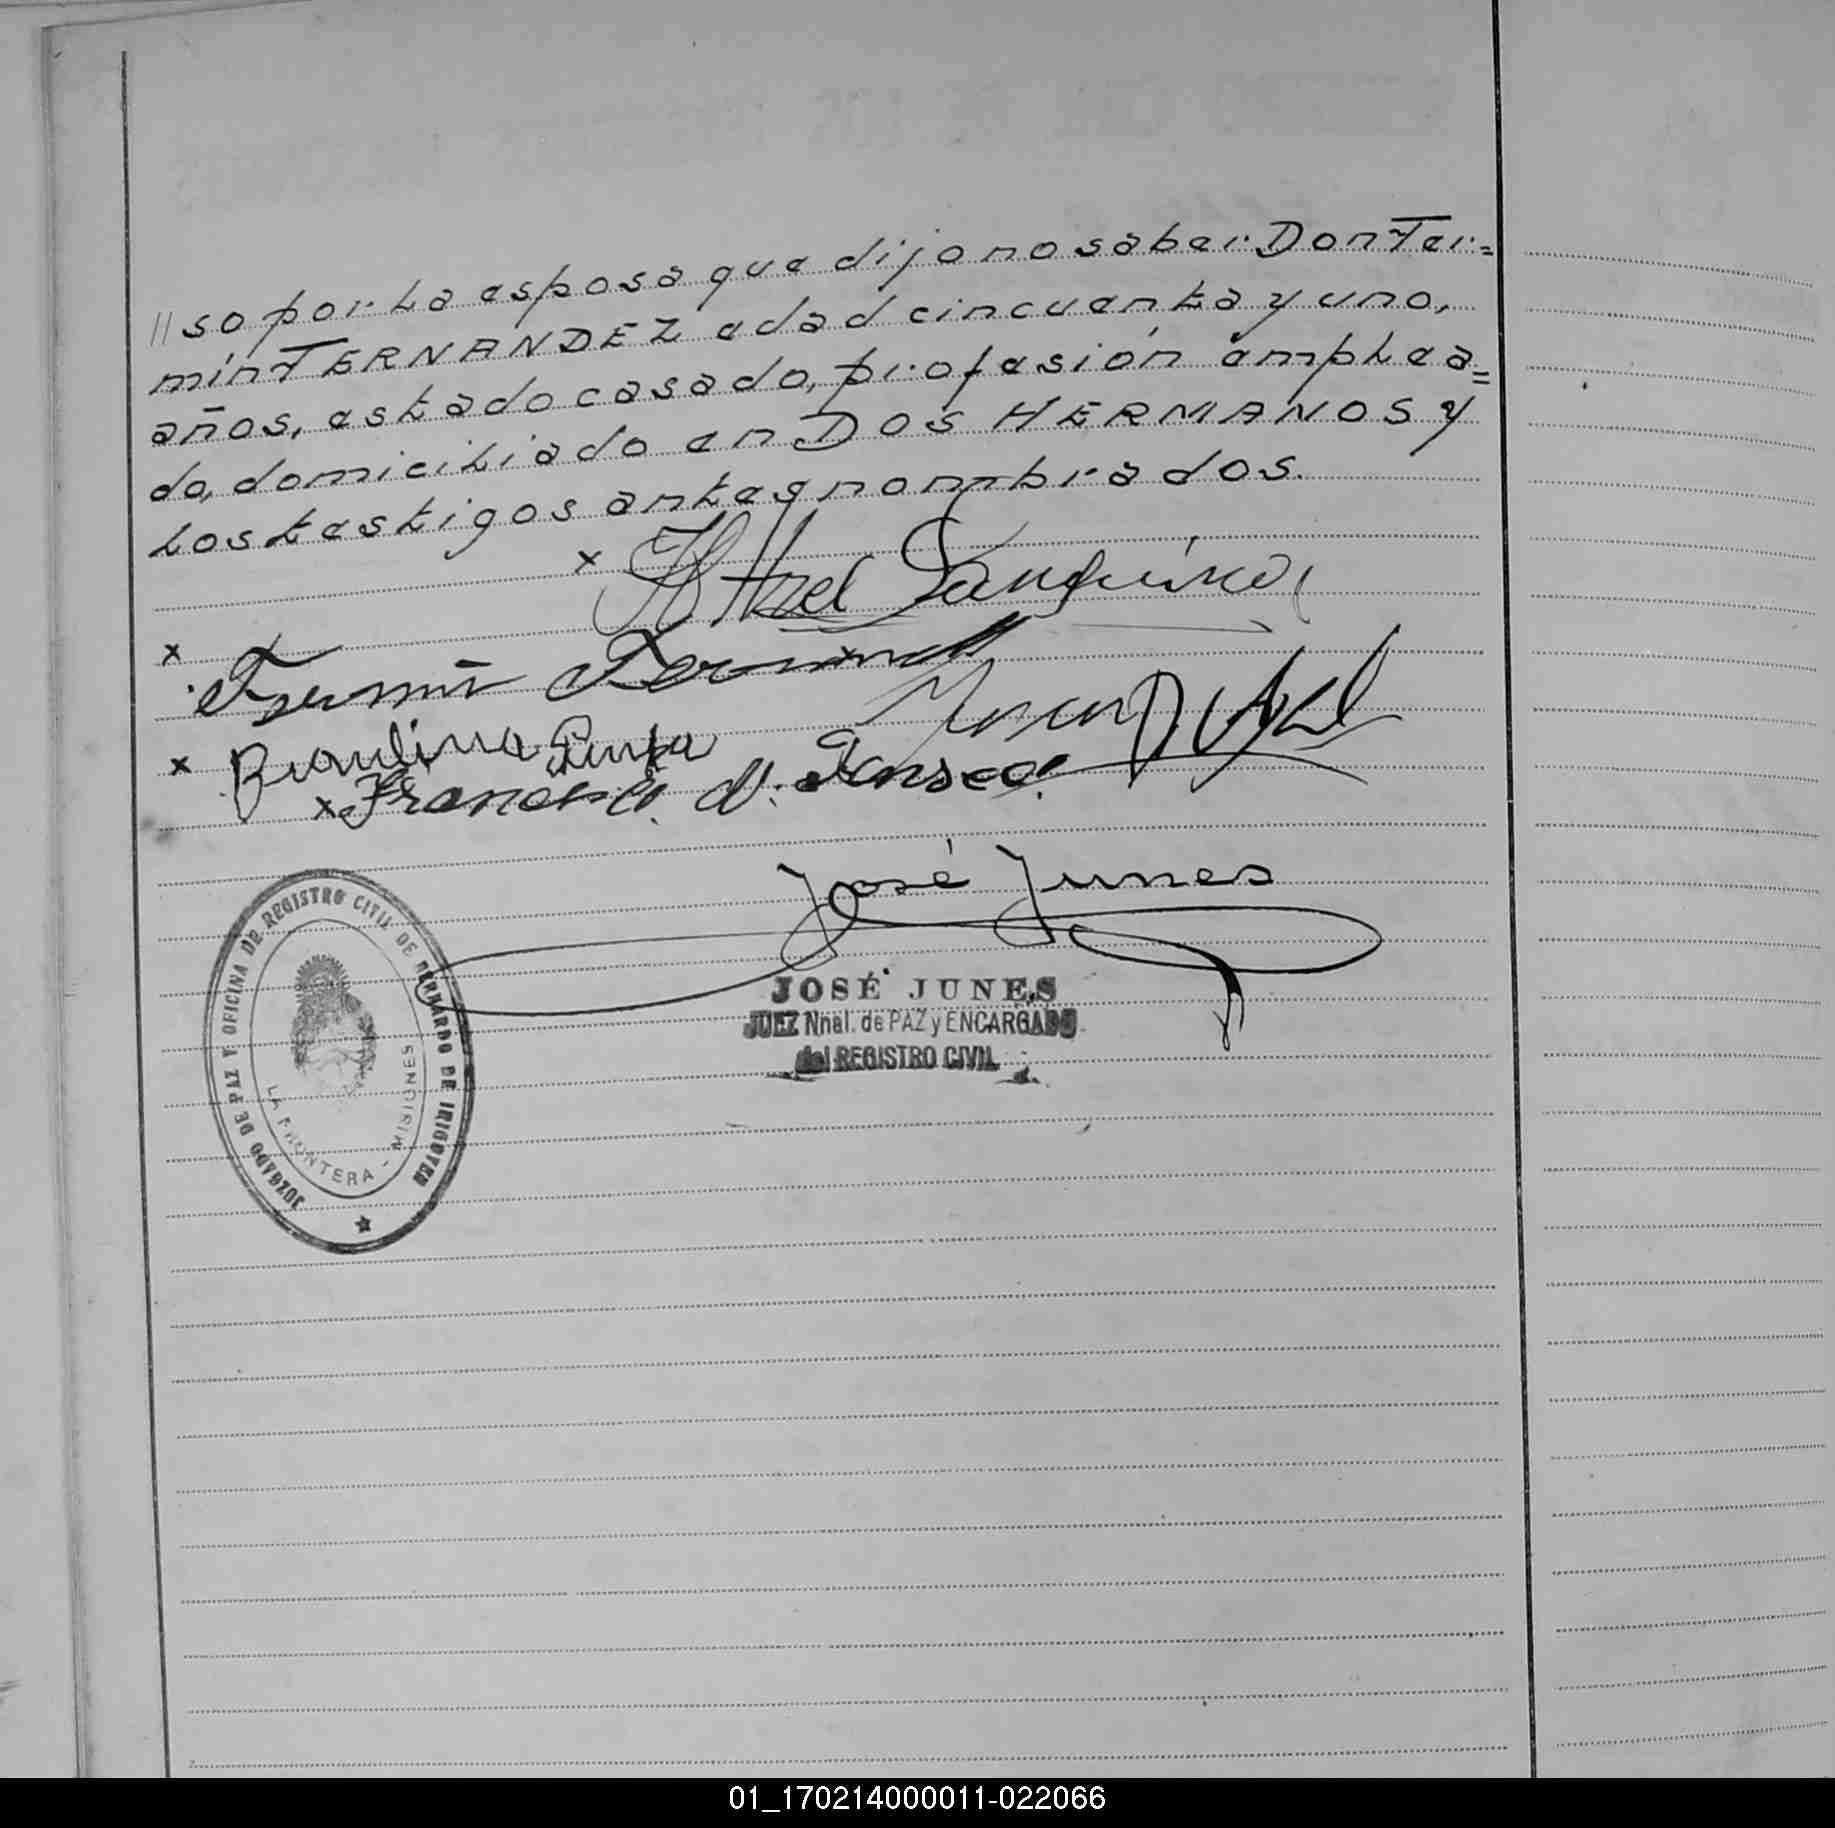 //so por la esposa que dijo no saber Don Fer=
mín FERNANDEZ edad cincuenta y uno,
años, estado casado, profesión emplea=
do, domiciliado en DOS HERMANOS y
los testigos antes nombrados.
x
x Fermin Fernand
x Braulina
x Francisco N. Fonseca
José Junes
JOSÉ JUNES
JUEZ Nnal. de PAZ y ENCARGADO
del REGISTRO CIVIL
JUZGADO DE PAZ Y OFICINA DE REGISTRO CIVIL DE BERNARDO DE IRIGOYEN
LA FRONTERA - MISIONES
01_170214000011-022066